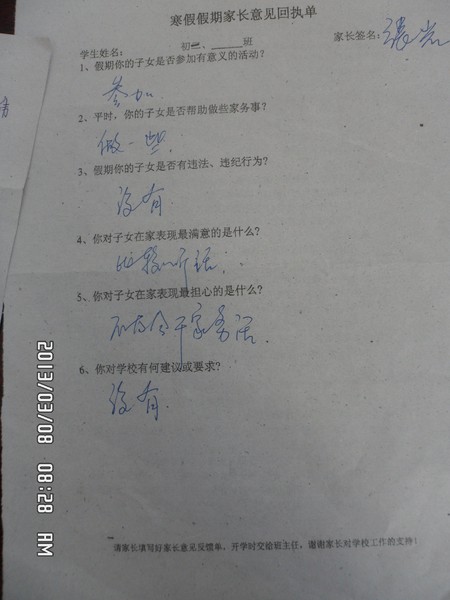 寒假假期家长意见回执单
学生姓名： 初二、____班 家长签名：张
1、假期你的子女是否参加有意义的活动？
参加.
2、平时，你的子女是否帮助做些家务事？
做一些.
3、假期你的子女是否有违法、违纪行为？
没有.
4、你对子女在家表现最满意的是什么？
比较听话.
5、你对子女在家表现最担心的是什么？
干家务活.
6、你对学校有何建议或要求？
没有.
请家长填写好家长意见反馈单，开学时交给班主任，谢谢家长对学校工作的支持！
2013/03/08 08:28 AM